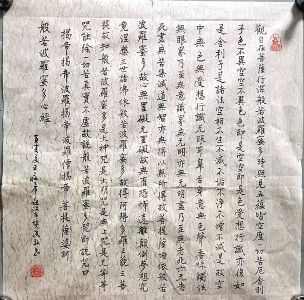 觀自在菩薩行深般若波羅蜜多時照見五蘊皆空度一切苦厄舍利
子色不異空空不異色色即是空空即是色受想行識亦復如
是舍利子是諸法空相不生不滅不垢不淨不增不減是故空
中無色無受想行識無眼耳鼻舌身意無色聲香味觸法
無眼界乃至無意識界無無明亦無無明盡乃至無老死亦無老
死盡無苦集滅道無智亦無得以無所得故菩提薩埵依般若
波羅蜜多故心無罣礙無罣礙故無有恐怖遠離顛倒夢想究
竟涅槃三世諸佛依般若波羅蜜多故得阿耨多羅三藐三菩
提故知般若波羅蜜多是大神咒是大明咒是無上咒是無等等
咒能除一切苦真實不虛故說般若波羅蜜多咒即說咒曰
揭帝揭帝波羅揭帝波羅僧揭帝菩提薩婆訶
般若波羅蜜多心經